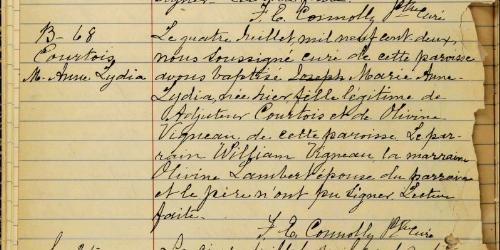 F. E. Connolly Ptre Curé
B-68
Courtois
M. Anne Lydia
Le quatre Juillet, mil neuf cent deux,
nous soussigné curé de cette paroisse
avons baptisé Joseph Marie Anne
Lydia, née hier fille légitime de
Adjuteur Courtois et de Olivine
Vigneau, de cette paroisse. Le par-
rain William Vigneau, la marraine
Olivine Lambert épouse du parrain
et le père n'ont pu signer. Lecture
faite.
F. E. Connolly Ptre Curé